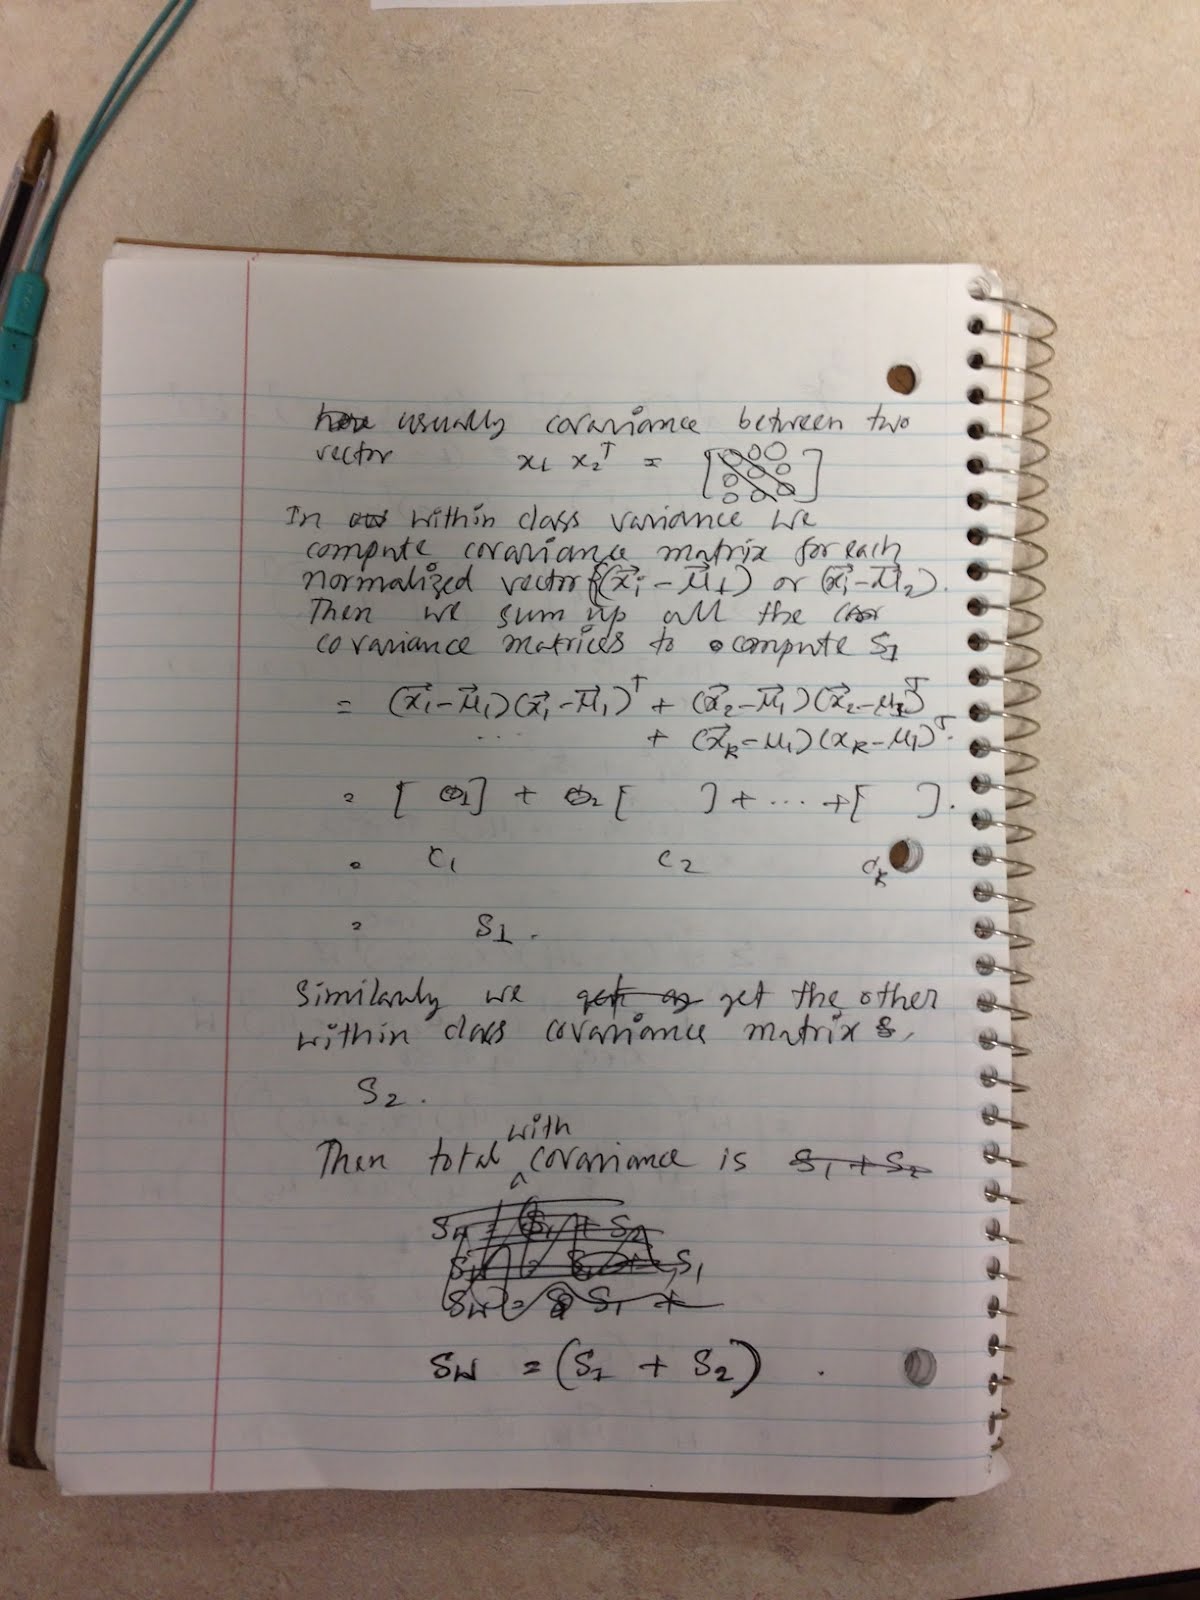 usually covariance between two
vector x₁ x₂ᵀ = [ ]
In within class variance we
compute covariance matrix for each
normalized vector ((x⃗ᵢ - μ⃗₁) or (x⃗ᵢ - μ⃗₂).
Then we sum up all the
covariance matrices to compute S₁
= (x⃗₁ - μ⃗₁)(x⃗₁ - μ⃗₁)ᵀ + (x⃗₂ - μ⃗₁)(x⃗₂ - μ₁)ᵀ
... + (x⃗ₖ - μ₁)(xₖ - μ₁)ᵀ.
= [ ] + [ ] + ... + [ ].
= C₁ C₂
= S₁.
Similarly we get the other
within class covariance matrix
S₂.
with
Then total covariance is S₁ + S₂
S_W = (S₁ + S₂).